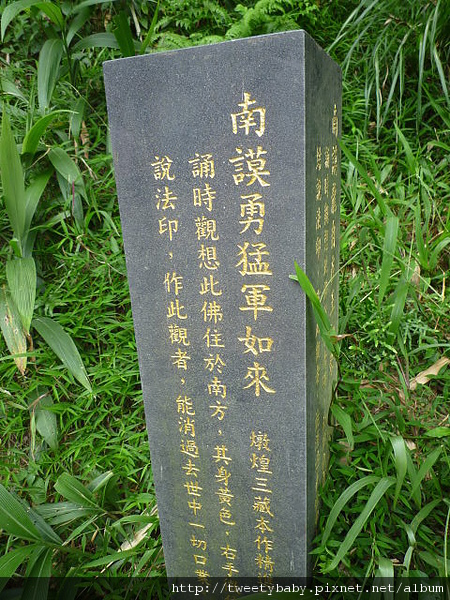 南謨勇猛軍如來
燉煌三藏夲作精
誦時觀想此佛住於南方，其身黃色，右手
說法印，作此觀者，能消過去世中一切口
http://tweetybaby.pixnet.net/album/